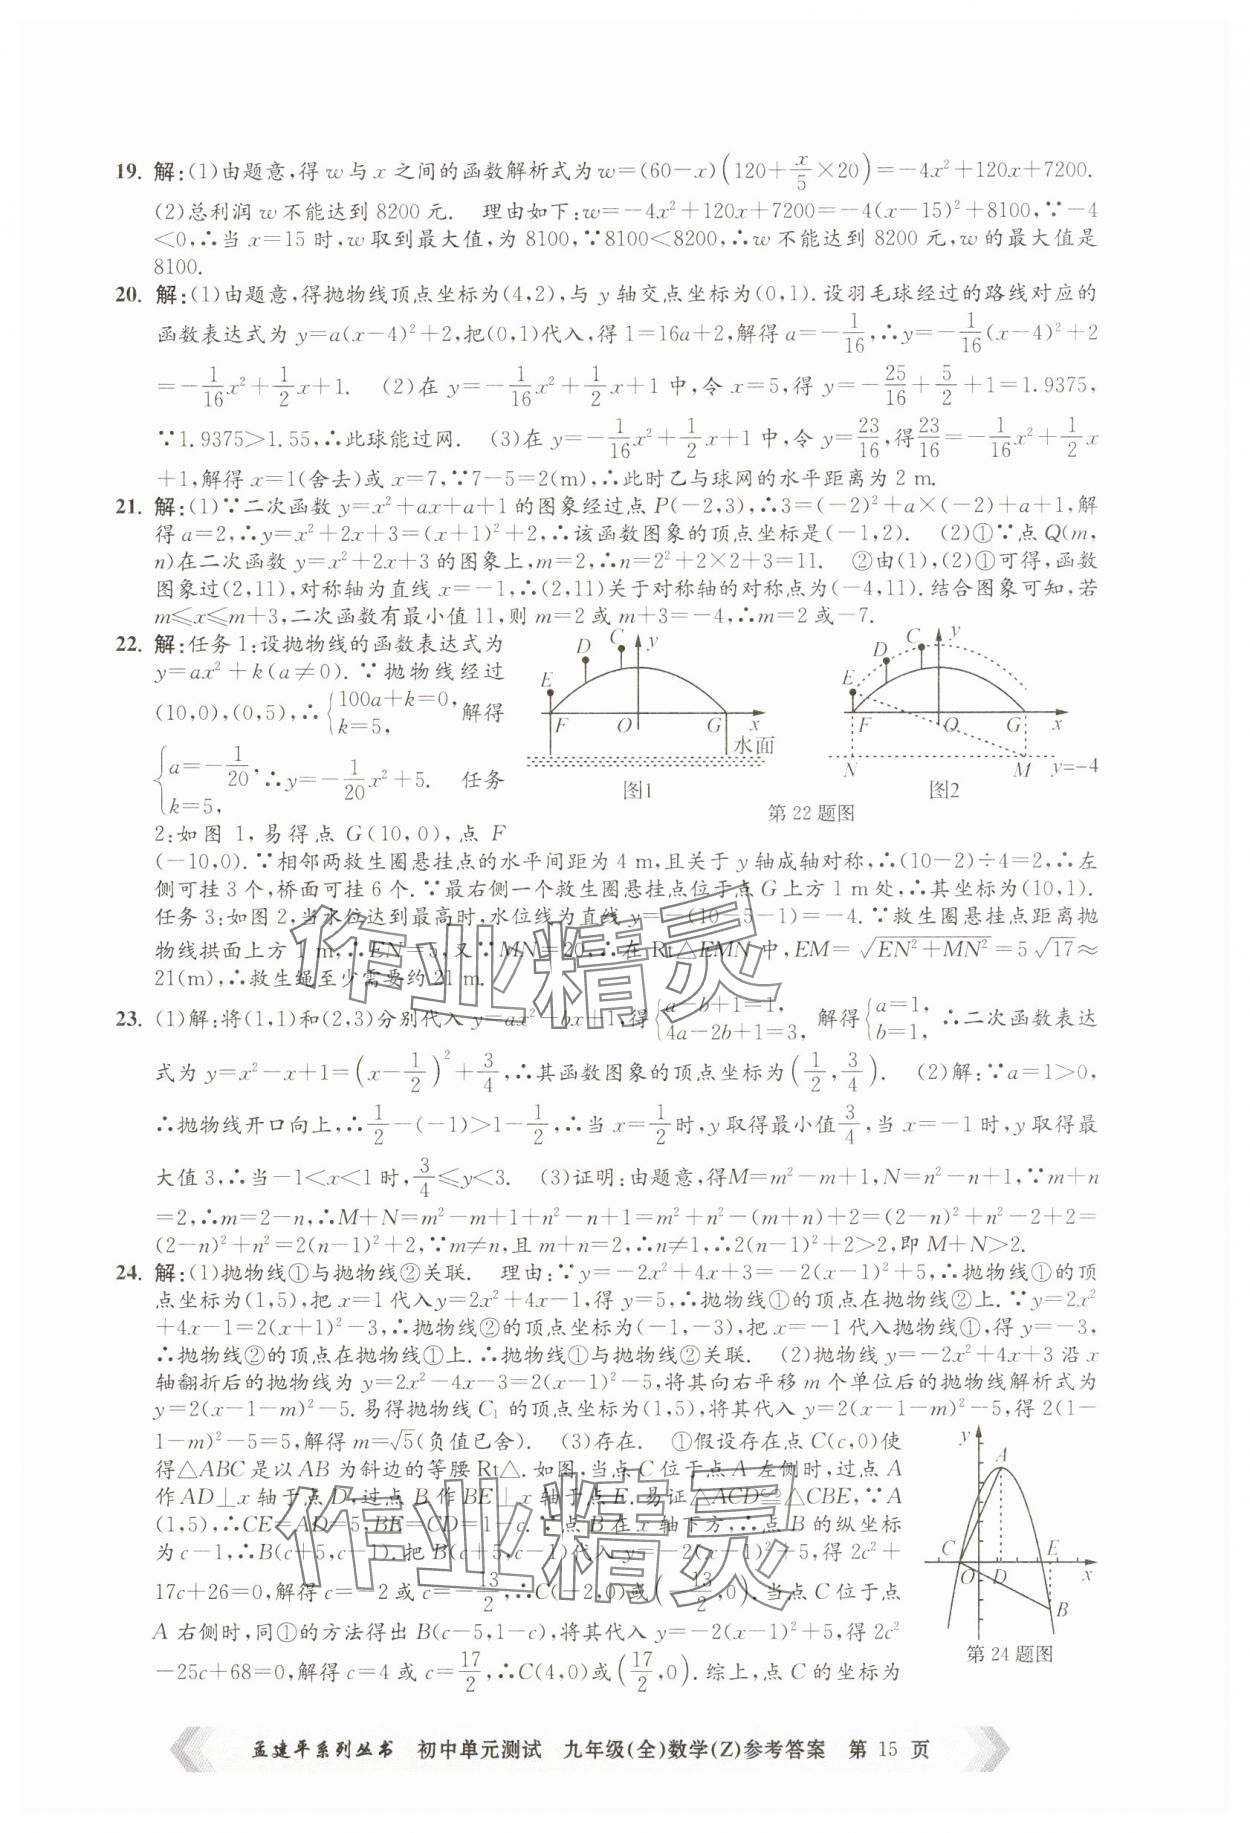 19. 解:(1)由题意,得 w 与 x 之间的函数解析式为 w=(60−x)(120+x/5×20)=−4x²+120x+7200.
(2)总利润 w 不能达到 8200 元. 理由如下:w=−4x²+120x+7200=−4(x−15)²+8100,∵−4
<0,∴当 x=15 时,w 取到最大值,为 8100,∵8100<8200,∴w 不能达到 8200 元,w 的最大值是
8100.
20. 解:(1)由题意,得抛物线顶点坐标为(4,2),与 y 轴交点坐标为(0,1).设羽毛球经过的路线对应的
函数表达式为 y=a(x−4)²+2,把(0,1)代入,得 1=16a+2,解得 a=−1/16,∴y=−1/16(x−4)²+2
=−1/16x²+1/2x+1. (2)在 y=−1/16x²+1/2x+1 中,令 x=5,得 y=−25/16+5/2+1=1.9375,
∵1.9375>1.55,∴此球能过网. (3)在 y=−1/16x²+1/2x+1 中,令 y=23/16,得23/16=−1/16x²+1/2x
+1,解得 x=1(舍去)或 x=7,∵7−5=2(m),∴此时乙与球网的水平距离为 2 m.
21. 解:(1)∵二次函数 y=x²+ax+a+1 的图象经过点 P(−2,3),∴3=(−2)²+a×(−2)+a+1,解
得 a=2,∴y=x²+2x+3=(x+1)²+2,∴该函数图象的顶点坐标是(−1,2). (2)①∵点 Q(m,
n)在二次函数 y=x²+2x+3 的图象上,m=2,∴n=2²+2×2+3=11. ②由(1),(2)①可得,函数
图象过(2,11),对称轴为直线 x=−1,∴(2,11)关于对称轴的对称点为(−4,11).结合图象可知,若
m≤x≤m+3,二次函数有最小值 11,则 m=2 或 m+3=−4,∴m=2 或−7.
22. 解:任务 1:设抛物线的函数表达式为
y=ax²+k(a≠0).∵抛物线经过
(10,0),(0,5),∴{100a+k=0, k=5, 解得
{a=−1/20, k=5, ∴y=−1/20x²+5. 任务
2:如图 1,易得点 G(10,0),点 F
E D C y F O G x 水面 图1
E D C y F O G x N M y=−4 图2
第 22 题图
(−10,0).∵相邻两救生圈悬挂点的水平间距为 4 m,且关于 y 轴成轴对称,∴(10−2)÷4=2,∴左
侧可挂 3 个,桥面可挂 6 个.∵最右侧一个救生圈悬挂点位于点 G 上方 1 m 处,∴其坐标为(10,1).
任务 3:如图 2,当水位达到最高时,水位线为直线 y=−(10−5−1)=−4.∵救生圈悬挂点距离抛
物线拱面上方 1 m,∴EN=5,又∵MN=20,∴在 Rt△EMN 中,EM=√(EN²+MN²)=5√17≈
21(m),∴救生绳至少需要约 21 m.
23. (1)解:将(1,1)和(2,3)分别代入 y=ax²+bx+1,得{a−b+1=1, 4a−2b+1=3, 解得{a=1, b=1, ∴二次函数表达
式为 y=x²−x+1=(x−1/2)²+3/4,∴其函数图象的顶点坐标为(1/2,3/4). (2)解:∵a=1>0,
∴抛物线开口向上,∴1/2−(−1)>1−1/2,∴当 x=1/2时,y 取得最小值3/4,当 x=−1 时,y 取得最
大值 3,∴当−1<x<1 时,3/4≤y<3. (3)证明:由题意,得M=m²−m+1,N=n²−n+1,∵m+n
=2,∴m=2−n,∴M+N=m²−m+1+n²−n+1=m²+n²−(m+n)+2=(2−n)²+n²−2+2=
(2−n)²+n²=2(n−1)²+2,∵m≠n,且 m+n=2,∴n≠1,∴2(n−1)²+2>2,即 M+N>2.
24. 解:(1)抛物线①与抛物线②关联. 理由:∵y=−2x²+4x+3=−2(x−1)²+5,∴抛物线①的顶
点坐标为(1,5),把 x=1 代入y=2x²+4x−1,得 y=5,∴抛物线①的顶点在抛物线②上.∵y=2x²
+4x−1=2(x+1)²−3,∴抛物线②的顶点坐标为(−1,−3),把 x=−1 代入抛物线①,得 y=−3,
∴抛物线②的顶点在抛物线①上.∴抛物线①与抛物线②关联. (2)抛物线 y=−2x²+4x+3 沿 x
轴翻折后的抛物线为 y=2x²−4x−3=2(x−1)²−5,将其向右平移 m 个单位后的抛物线解析式为
y=2(x−1−m)²−5.易得抛物线 C₁ 的顶点坐标为(1,5),将其代入 y=2(x−1−m)²−5,得 2(1−
1−m)²−5=5,解得 m=√5(负值已舍). (3)存在. ①假设存在点 C(c,0)使
得△ABC 是以 AB 为斜边的等腰 Rt△.如图,当点 C 位于点 A 左侧时,过点 A
作 AD⊥x 轴于点 D,过点 B 作 BE⊥x 轴于点 E.易证△ACD≌△CBE,∵A
(1,5),∴CE=AD=5,BE=CD=1−c.∵点 B 在 x 轴下方,∴点 B 的纵坐标
为 c−1,∴B(c+5,c−1).把 B(c+5,c−1)代入 y=−2(x−1)²+5,得 2c²+
17c+26=0,解得 c=−2 或 c=−13/2,∴C(−2,0)或(−13/2,0).当点 C 位于点
A 右侧时,同①的方法得出 B(c−5,1−c),将其代入 y=−2(x−1)²+5,得 2c²
−25c+68=0,解得 c=4 或 c=17/2,∴C(4,0)或(17/2,0).综上,点 C 的坐标为
y A C O D E x B
第 24 题图
作业精灵
作业精灵
孟建平系列丛书 初中单元测试 九年级(全)数学(Z)参考答案 第 15 页